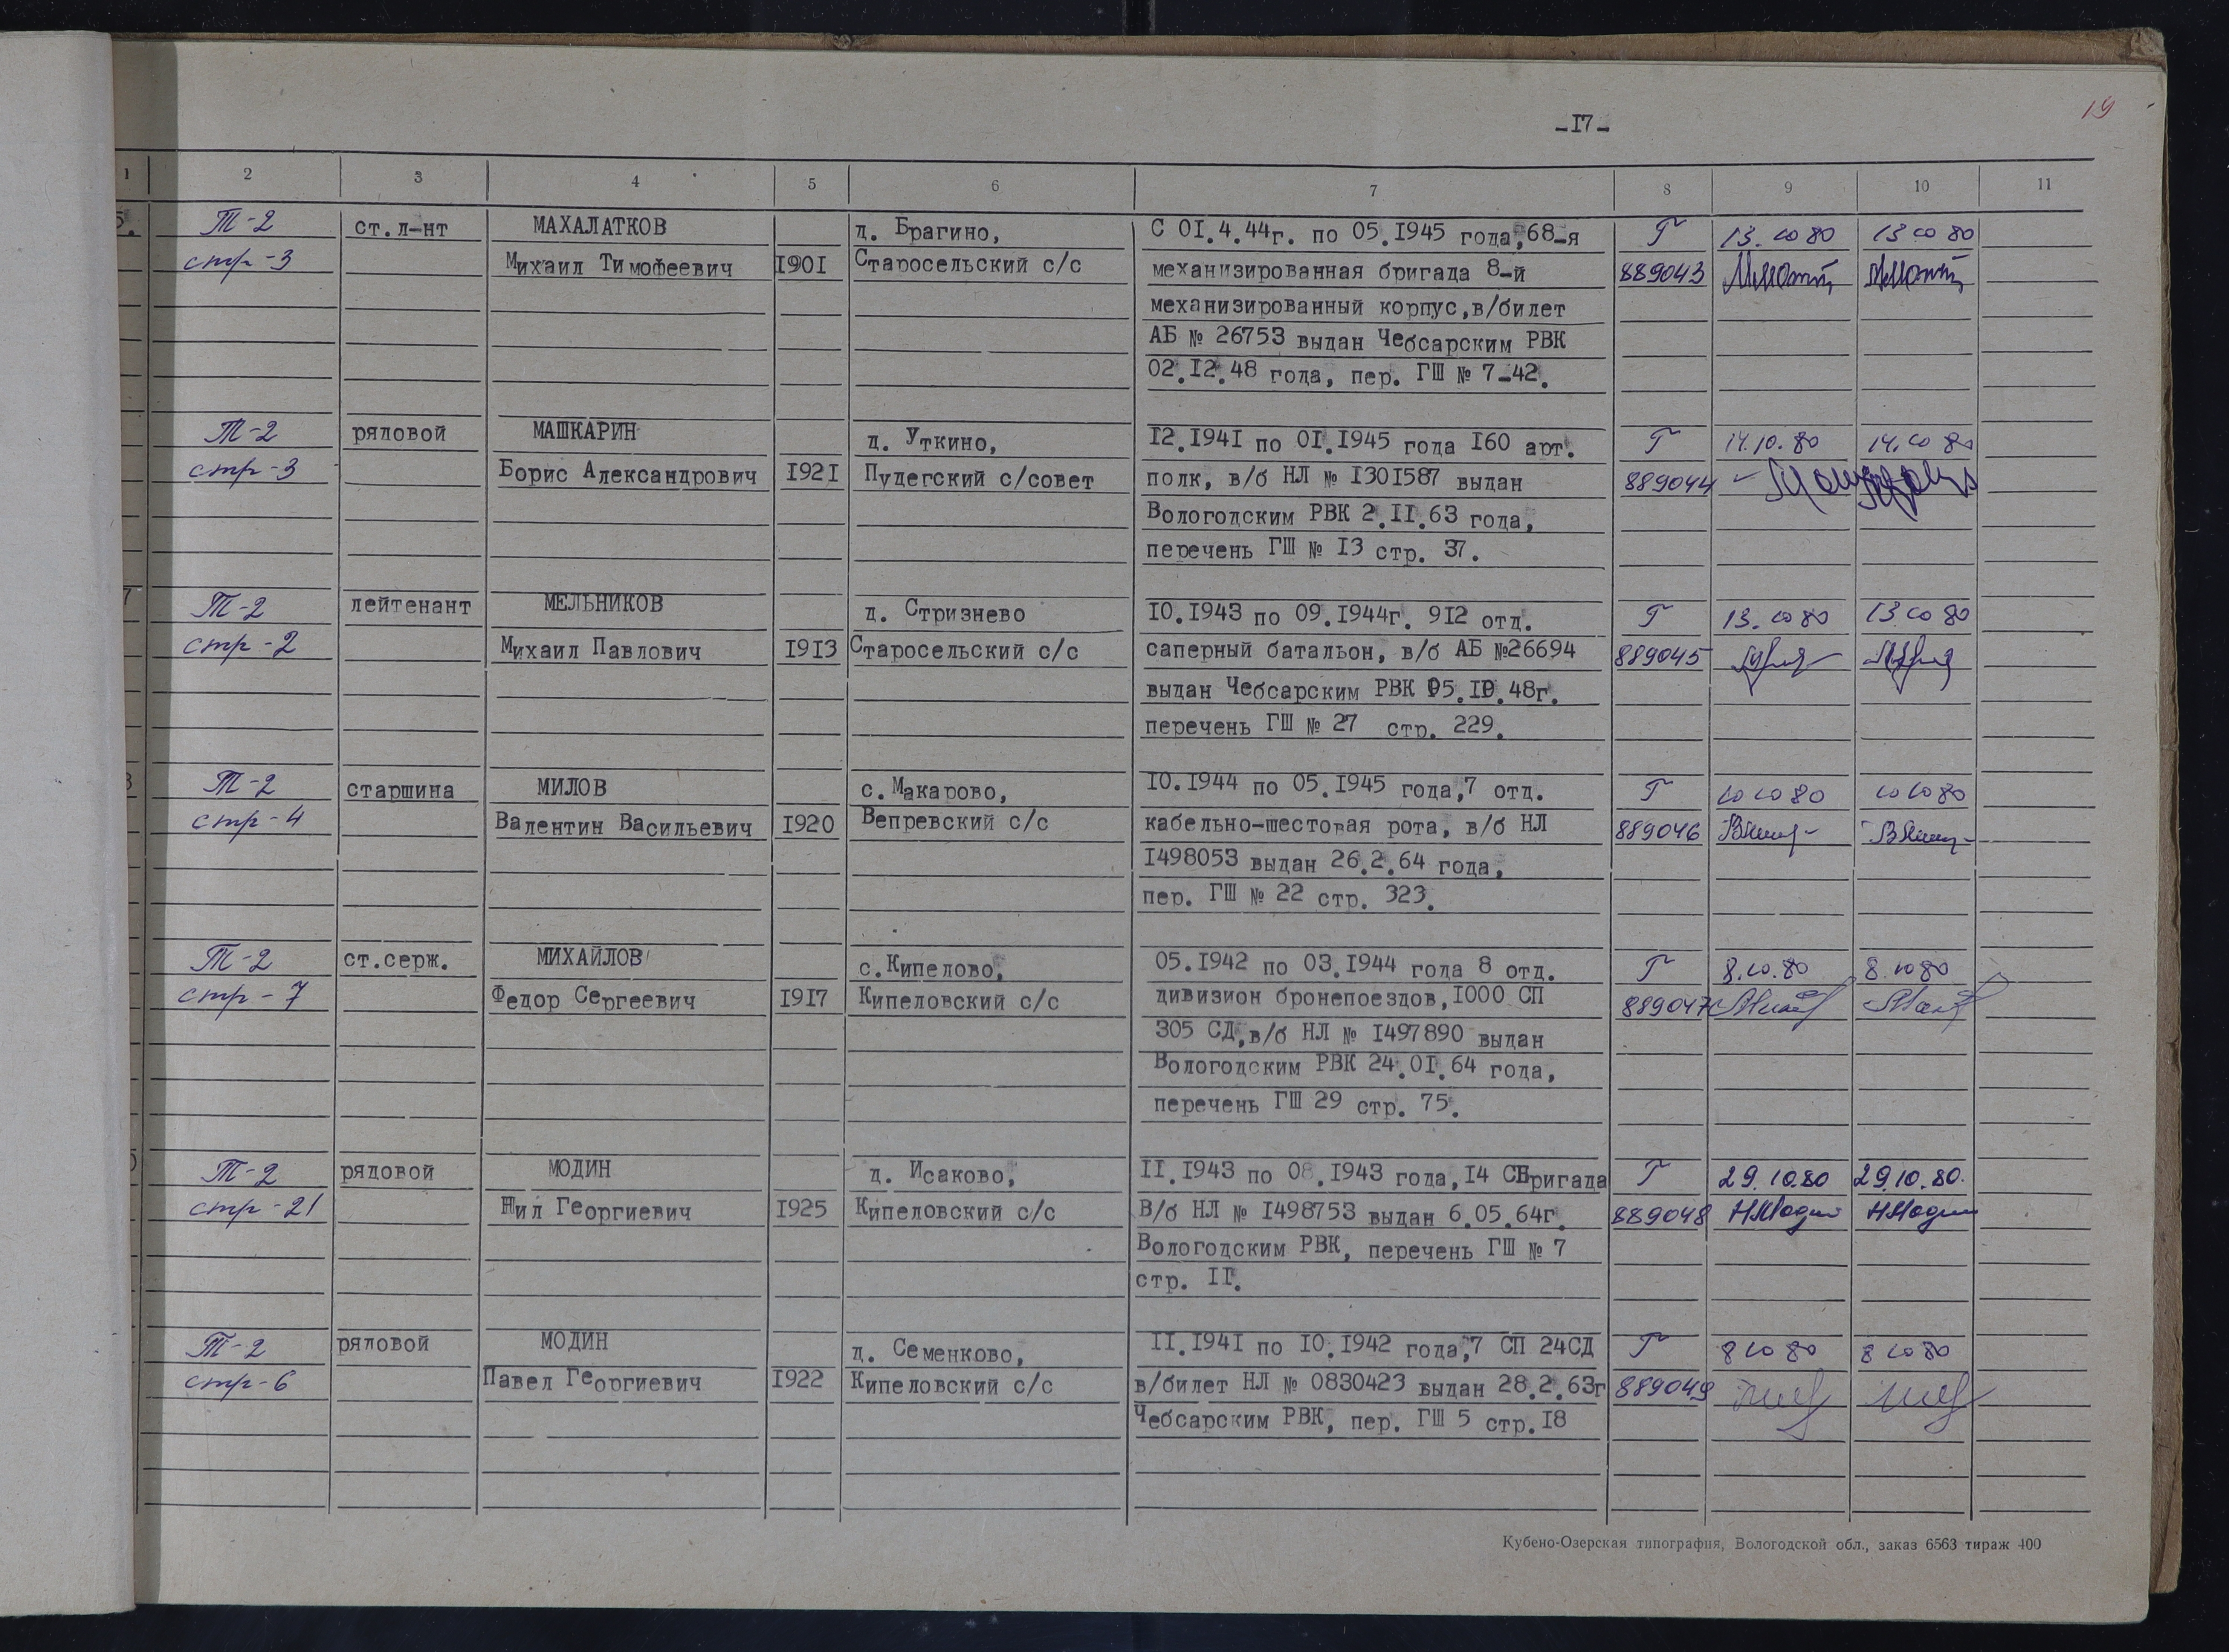 19
-17-
1 2 3 4 5 6 7 8 9 10 11
5. Т-2 ст.л-нт МАХАЛАТКОВ д. Брагино, С 01.4.44г. по 05.1945 года,68-я Г 13.10 80 13 10 80
стр-3 Михаил Тимофеевич 1901 Старосельский с/с механизированная бригада 8-й 889043
механизированный корпус,в/билет
АБ № 26753 выдан Чебсарским РВК
02.12.48 года, пер. ГШ № 7-42.
Т-2 рядовой МАШКАРИН д. Уткино, 12.1941 по 01.1945 года 160 арт. Г 14.10.80 14.10 80
стр-3 Борис Александрович 1921 Пудегский с/совет полк, в/б НЛ № 1301587 выдан 889044
Вологодским РВК 2.11.63 года,
перечень ГШ № 13 стр. 37.
7 Т-2 лейтенант МЕЛЬНИКОВ д. Стризнево 10.1943 по 09.1944г. 912 отд. Г 13.10 80 13.10 80
стр-2 Михаил Павлович 1913 Старосельский с/с саперный батальон, в/б АБ №26694 889045
выдан Чебсарским РВК 05.10.48г.
перечень ГШ № 27 стр. 229.
8 Т-2 старшина МИЛОВ с. Макарово, 10.1944 по 05.1945 года,7 отд. Г 10 10 80 10 10 80
стр-4 Валентин Васильевич 1920 Вепревский с/с кабельно-шестовая рота, в/б НЛ 889046
1498053 выдан 26.2.64 года,
пер. ГШ № 22 стр. 323.
Т-2 ст.серж. МИХАЙЛОВ с.Кипелово, 05.1942 по 03.1944 года 8 отд. Г 8.10.80 8.10 80
стр-7 Федор Сергеевич 1917 Кипеловский с/с дивизион бронепоездов,1000 СП 889047
305 СД,в/б НЛ № 1497890 выдан
Вологодским РВК 24.01.64 года,
перечень ГШ 29 стр. 75.
Т-2 рядовой МОДИН д. Исаково, 11.1943 по 08.1943 года,14 СБригада Г 29.10.80 29.10.80.
стр-21 Нил Георгиевич 1925 Кипеловский с/с В/б НЛ № 1498753 выдан 6.05.64г. 889048 НМодин НМодин
Вологодским РВК, перечень ГШ № 7
стр. 11.
Т-2 рядовой МОДИН д. Семенково, 11.1941 по 10.1942 года,7 СП 24СД Г 8 10 80 8 10 80
стр-6 Павел Георгиевич 1922 Кипеловский с/с в/билет НЛ № 0830423 выдан 28.2.63г 889049
Чебсарским РВК, пер. ГШ 5 стр.18
Кубено-Озерская типография, Вологодской обл., заказ 6563 тираж 400